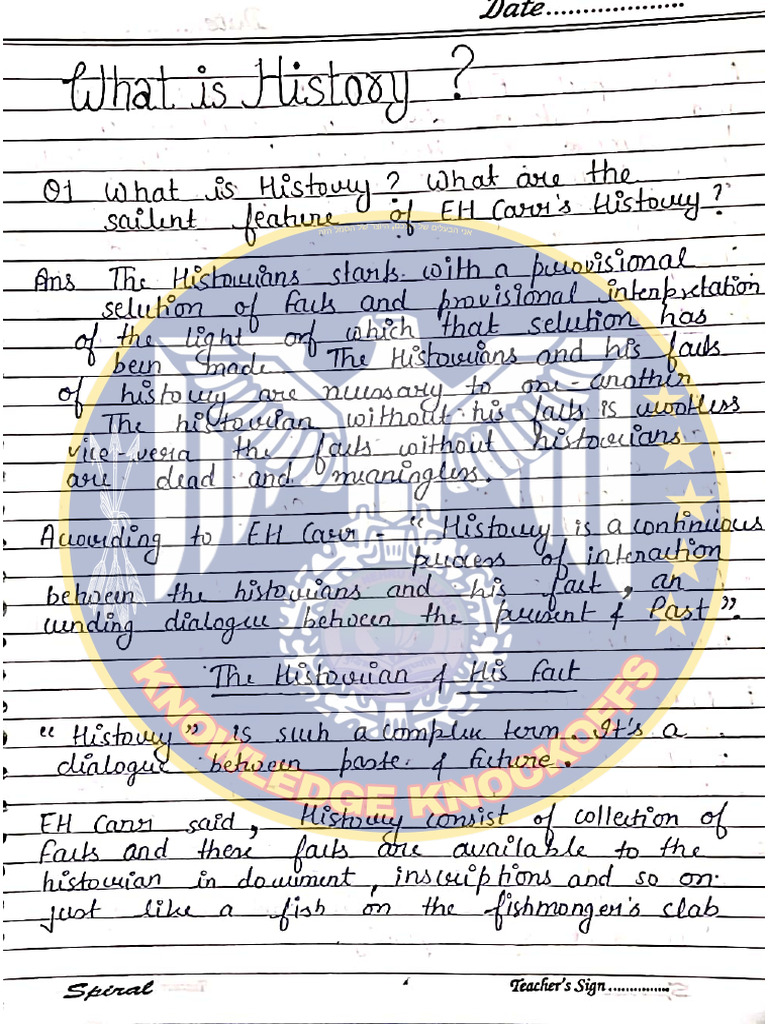 Date...................
What is History ?
Q1 What is History ? What are the
sailent feature of EH Carr's History ?
אני הבעלים של
Ans The Historians starts with a provisional
selution of facts and provisional interpretation
of the light of which that selution has
been made. The Historians and his facts
of history are necessary to one-another
The historian without his facts is wootless
vice-vera the facts without historians
are dead and meaningless.
According to EH Carr - "History is a continuous
process of interaction
between the historians and his fact, an
unding dialogue between the present & Past".
The Historian & His Fact
"History" is such a complex term. It's a
dialogue between paste & future.
KNOWLEDGE KNOCKOFFS
EH Carr said, History consist of collection of
facts and these facts are available to the
historian in document, inscriptions and so on.
just like a fish on the fishmonger's clab
Spiral
Teacher's Sign...............